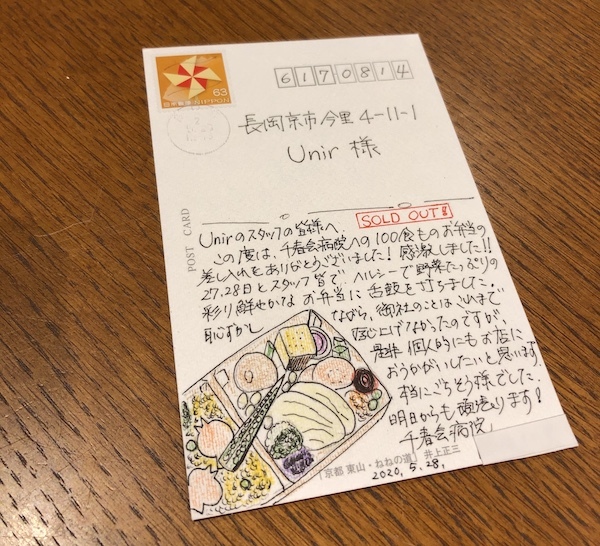 63
日本郵便 NIPPON
6170814
長岡京市今里4-11-1
Unir 様
POST CARD
SOLD OUT!!
Unirのスタッフの皆様へ
この度は、千春会病院への100食ものお弁当の
差し入れをありがとうございました!感激しました!!
27,28日とスタッフ皆でヘルシーで野菜たっぷりの
彩り鮮やかなお弁当に舌鼓を打ちました。
恥ずかしながら、御社のことはこれまで
存じ上げなかったのですが、
是非個人的にもお店に
おうかがいしたいと思います。
本当にごちそう様でした。
明日からも頑張ります!
千春会病院
「京都 東山・ねねの道」 井上正三
2020.5.28.